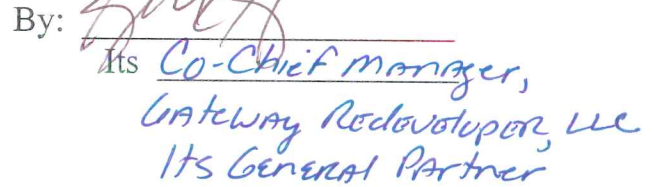 By:
Its Co-Chief Manager,
Gateway Redeveloper, LLC
Its General Partner